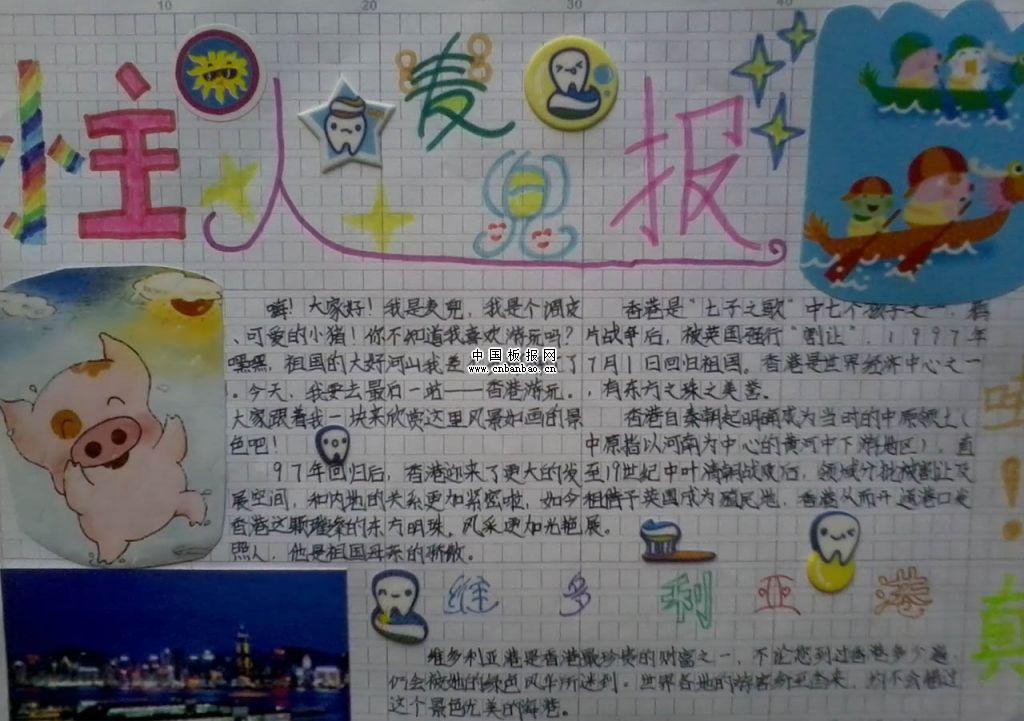 10 20 30 40
小主人麦兜报
嗨！大家好！我是麦兜，我是个调皮
、可爱的小猪！你不知道我喜欢游玩吗？
嘿嘿，祖国的大好河山我差 了
。今天，我要去最后一站——香港游玩。
大家跟着我一块来欣赏这里风景如画的景
色吧！
97年回归后，香港迎来了更大的发
展空间，和内地的关系更加紧密啦，如今
香港这颗璀璨的东方明珠，风采更加光艳
照人，他是祖国母亲的骄傲。
香港是“七子之歌”中七个孩子之一，鸦
片战争后，被英国强行“割让”，1997年
7月1日回归祖国。香港是世界经济中心之一
，有东方之珠之美誉。
香港自秦朝起明确成为当时的中原领土（
中原指以河南为中心的黄河中下游地区），直
至19世纪中叶清朝战败后，领域分批被割让及
租借于英国成为殖民地，香港从而开 港口发
展。
中国板报网
www.cnbanbao.cn
哇！
真
维多利亚港
维多利亚港是香港最珍贵的财富之一，不论您到过香港多少遍
们会被她的绿色风华所迷到。世界各地的游客 ，均不会错过
这个景色优美的海港。